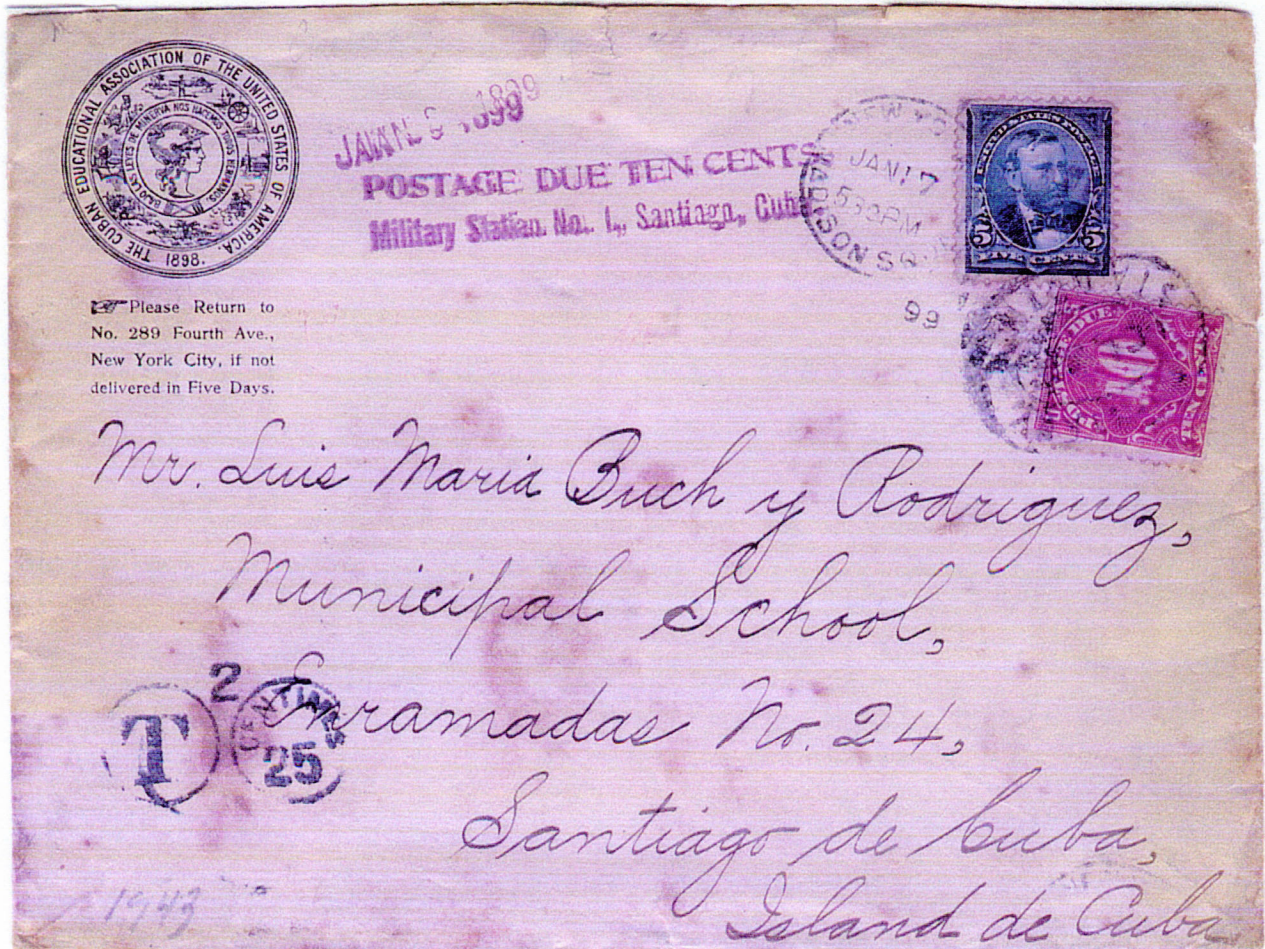 THE CUBAN EDUCATIONAL ASSOCIATION OF THE UNITED STATES OF AMERICA
BAJO LAS LEYES DE MINERVA NOS HACEMOS TODOS HERMANOS.
1898.
Please Return to
No. 289 Fourth Ave.,
New York City, if not
delivered in Five Days.
1899
POSTAGE DUE TEN CENTS
Military Station No. 1, Santiago, Cuba
NEW YO
JAN 17
530PM
MADISON SQ.
99
UNITED STATES POSTAGE
5 5
FIVE CENTS
POSTAGE DUE
10
Mr. Luis Maria Buch y Rodriguez,
Municipal School,
Enramadas No. 24,
Santiago de Cuba,
Island de Cuba
T
2
CENTIMES
25
1943